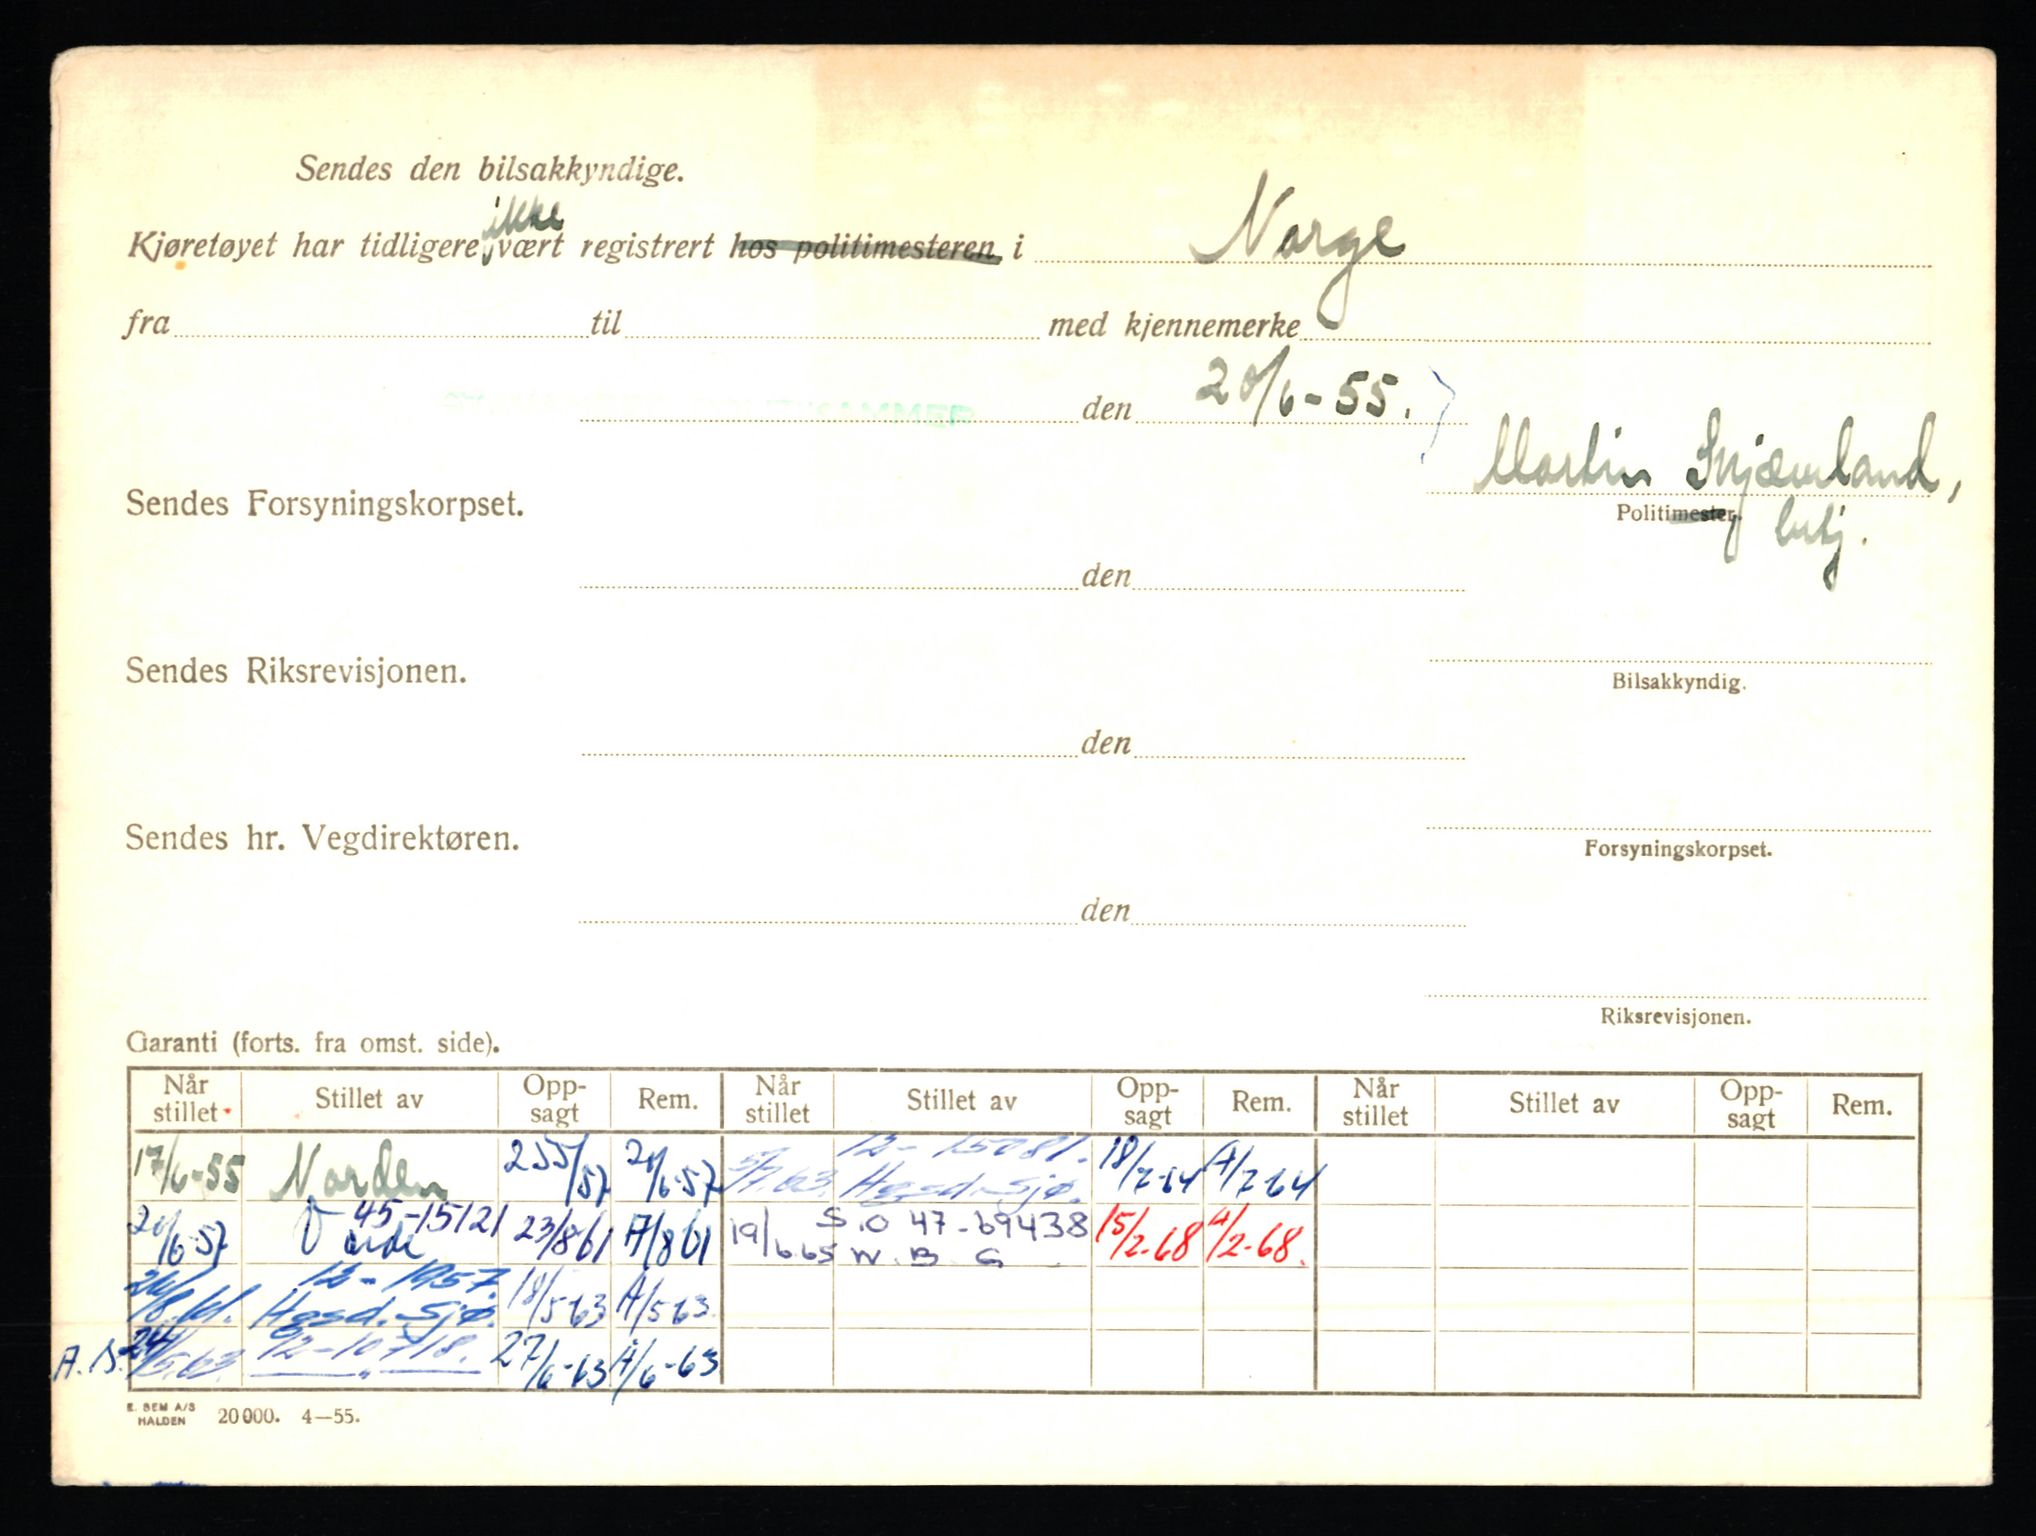 Sendes den bilsakkyndige.
ikke
Kjøretøyet har tidligere vært registrert hos politimesteren i Norge
fra til med kjennemerke
den 20/6-55.
Martin Skjæveland,
Sendes Forsyningskorpset.
Politimester.
betj.
den
Sendes Riksrevisjonen.
Bilsakkyndig.
den
Sendes hr. Vegdirektøren.
Forsyningskorpset.
den
Riksrevisjonen.
Garanti (forts. fra omst. side).
Når stillet Stillet av Oppsagt Rem. Når stillet Stillet av Oppsagt Rem. Når stillet Stillet av Oppsagt Rem.
17/6-55 Norden 25/5/57 20/6-57 5/7.63. 12-15781. Hgsd. Sjø. 18/7-64 A/7-64
20/6-57 45-15121 Varde 23/8-61 A/8-61 19/6.65 S.O 47-69438 W.B.G 15/2-68 A/2-68.
12-1957. Hgsd. Sjø. 18/5-63 A/5-63.
A.S. 24/5.63. 12-10718. —„— 27/6-63 A/6-63
E. SEM A/S
HALDEN 20000. 4—55.